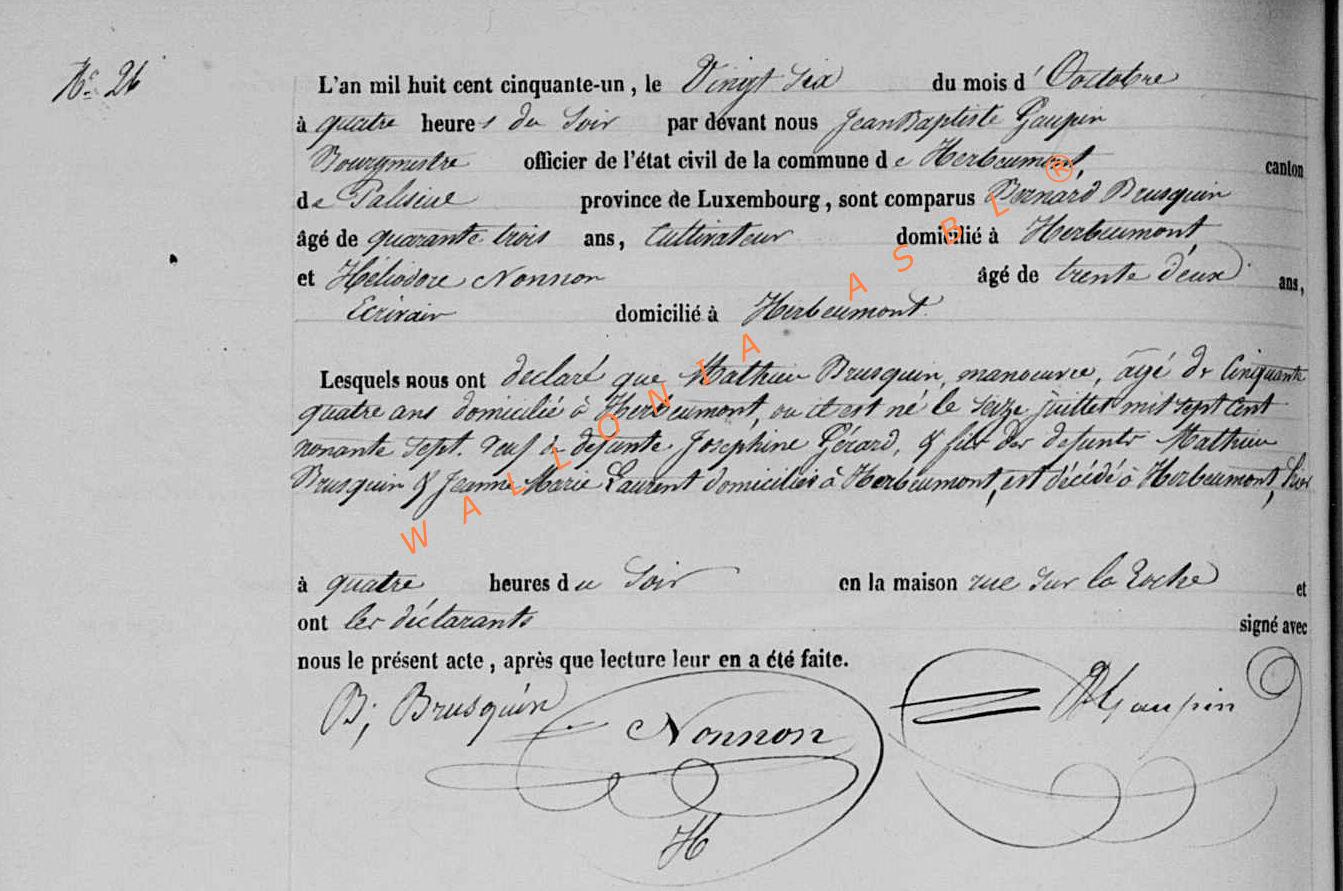 N° 26
L'an mil huit cent cinquante-un, le Vingt Six du mois d' Octobre
à quatre heures du Soir par devant nous Jean Baptiste Gaupin
Bourgmestre officier de l'état civil de la commune de Herbeumont, canton
de Paliseul province de Luxembourg, sont comparus Bernard Brusquin
âgé de quarante trois ans, Cultivateur domicilié à Herbeumont,
et Héliodore Nonnon âgé de trente deux ans,
Ecrivain domicilié à Herbeumont.
Lesquels nous ont declaré que Mathieu Brusquin, manoeuvre, âgé de Cinquante
quatre ans domicilié à Herbeumont, ou il est né le seize juillet mil sept cent
nonante sept. veuf de defunte Josephine Gérard, & fils des defunts Mathieu
Brusquin & Jeanne Marie Laurent domiciliés à Herbeumont, est décédé à Herbeumont, hier
à quatre heures du Soir en la maison rue sur la Roche et
ont les déclarants signé avec
nous le présent acte, après que lecture leur en a été faite.
B, Brusquin Nonnon Gaupin
H
WALLONIA ASBL ®